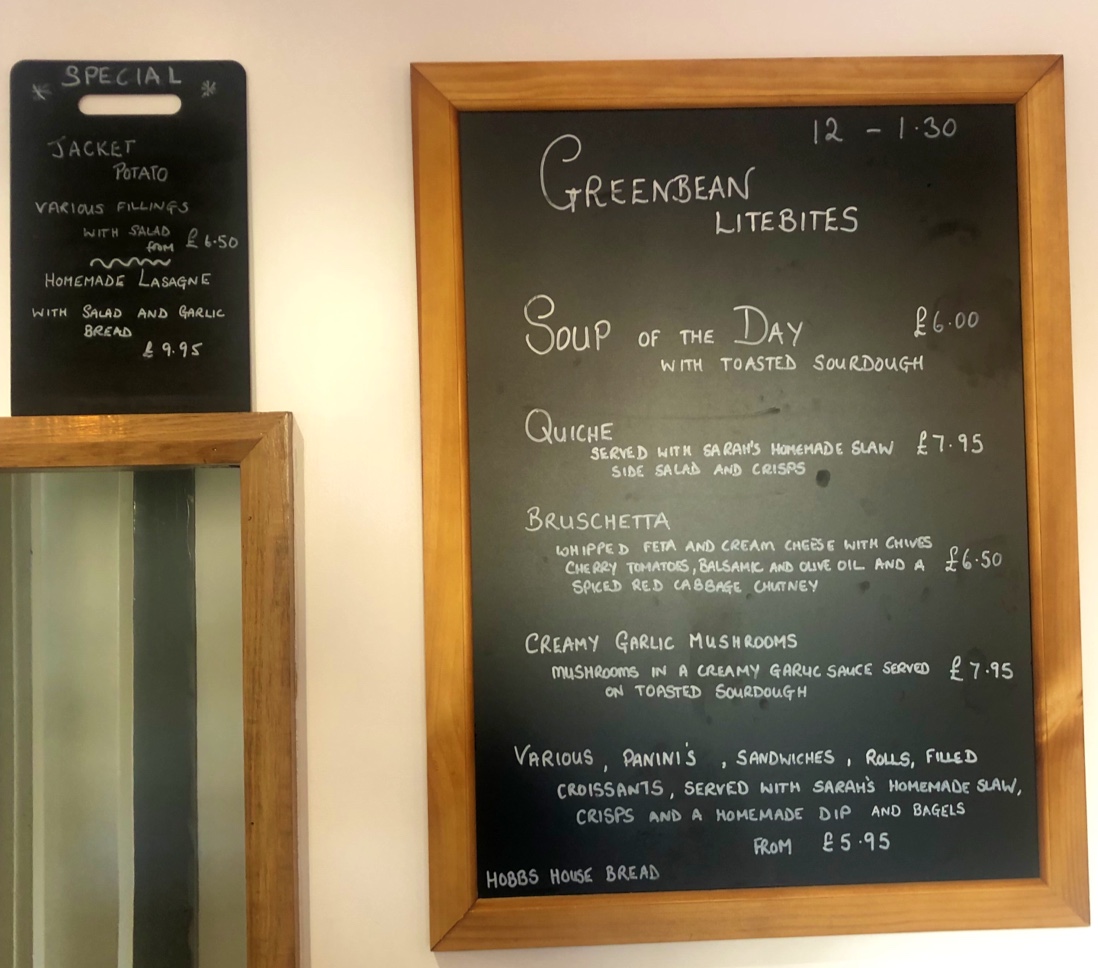 SPECIAL
JACKET
POTATO
VARIOUS FILLINGS
WITH SALAD
from £6.50
HOMEMADE LASAGNE
WITH SALAD AND GARLIC
BREAD
£9.95
12 - 1.30
GREENBEAN
LITEBITES
SOUP OF THE DAY £6.00
WITH TOASTED SOURDOUGH
QUICHE
SERVED WITH SARAH'S HOMEMADE SLAW £7.95
SIDE SALAD AND CRISPS
BRUSCHETTA
WHIPPED FETA AND CREAM CHEESE WITH CHIVES
CHERRY TOMATOES, BALSAMIC AND OLIVE OIL AND A £6.50
SPICED RED CABBAGE CHUTNEY
CREAMY GARLIC MUSHROOMS
MUSHROOMS IN A CREAMY GARLIC SAUCE SERVED £7.95
ON TOASTED SOURDOUGH
VARIOUS, PANINI'S, SANDWICHES, ROLLS, FILLED
CROISSANTS, SERVED WITH SARAH'S HOMEMADE SLAW,
CRISPS AND A HOMEMADE DIP AND BAGELS
FROM £5.95
HOBBS HOUSE BREAD